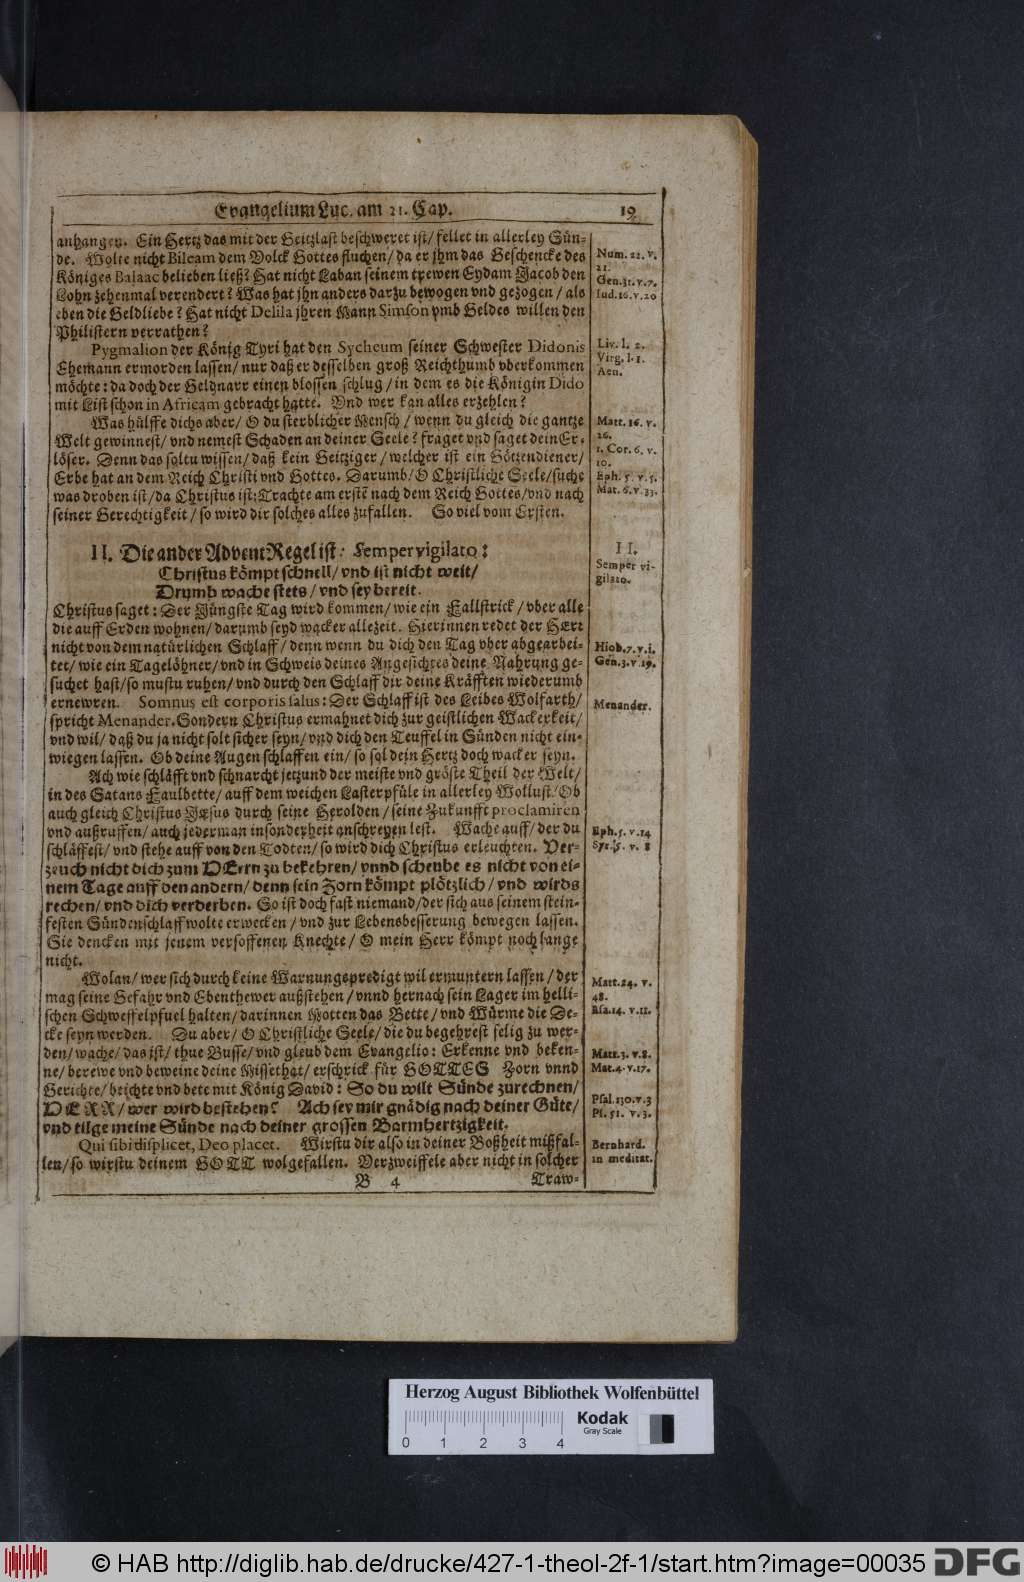 Evangelium Luc. am 21. Cap. 19
anhangen. Ein Hertz das mit der Geitzlast beschweret ist/ fellet in allerley Sün-
de. Wolte nicht Bileam dem Volck Gottes fluchen/ da er jhm das Geschencke des
Königes Balaac belieben ließ? Hat nicht Laban seinem trewen Eydam Jacob den
Lohn zehenmal verendert? Was hat jhn anders darzu bewogen vnd gezogen/ als
eben die Geldliebe? Hat nicht Delila jhren Mann Simson vmb Geldes willen den
Philistern verrathen?
Pygmalion der König Tyri hat den Sycheum seiner Schwester Didonis
Ehemann ermorden lassen/ nur daß er desselben groß Reichthumb vberkommen
möchte: da doch der Geldnarr einen blossen schlug/ in dem es die Königin Dido
mit List schon in Africam gebracht hatte. Vnd wer kan alles erzehlen?
Was hülffe dichs aber/ O du sterblicher Mensch/ wenn du gleich die gantze
Welt gewinnest/ vnd nemest Schaden an deiner Seele? fraget vnd saget dein Er-
löser. Denn das soltu wissen/ daß kein Geitziger/ welcher ist ein Götzendiener/
Erbe hat an dem Reich Christi vnd Gottes. Darumb/ O Christliche Seele/ suche
was droben ist/ da Christus ist: Trachte am erstē nach dem Reich Gottes/ vnd nach
seiner Gerechtigkeit/ so wird dir solches alles zufallen. So viel vom Ersten.
II. Die ander Advent Regel ist: Semper vigilato:
Christus kömpt schnell/ vnd ist nicht weit/
Drumb wache stets/ vnd sey bereit.
Christus saget: Der Jüngste Tag wird kommen/ wie ein Fallstrick/ vber alle
die auff Erden wohnen/ darumb seyd wacker allezeit. Hierinnen redet der HErr
nicht von dem natürlichen Schlaff/ denn wenn du dich den Tag vber abgearbei-
tet/ wie ein Tagelöhner/ vnd in Schweis deines Angesichtes deine Nahrung ge-
suchet hast/ so mustu ruhen/ vnd durch den Schlaff dir deine Kräfften wiederumb
ernewren. Somnus est corporis salus: Der Schlaff ist des Leibes Wolfarth/
spricht Menander. Sondern Christus ermahnet dich zur geistlichen Wackerkeit/
vnd wil/ daß du ja nicht solt sicher seyn/ vnd dich den Teuffel in Sünden nicht ein-
wiegen lassen. Ob deine Augen schlaffen ein/ so sol dein Hertz doch wacker seyn.
Ach wie schläfft vnd schnarcht jetzund der meiste vnd gröste Theil der Welt/
in des Satans Faulbette/ auff dem weichen Lasterpfüle in allerley Wollust/ Ob
auch gleich Christus JEsus durch seine Herolden/ seine Zukunfft proclamiren
vnd außruffen/ auch jederman insonderheit anschreyen lest. Wache auff/ der du
schläffest/ vnd stehe auff von den Todten/ so wird dich Christus erleuchten. Ver-
zeuch nicht dich zum HErrn zu bekehren/ vnnd scheube es nicht von ei-
nem Tage auff den andern/ denn sein Zorn kömpt plötzlich/ vnd wirds
rechen/ vnd dich verderben. So ist doch fast niemand/ der sich aus seinem stein-
festen Sündenschlaff wolte erwecken/ vnd zur Lebensbesserung bewegen lassen.
Sie dencken mit jenem versoffenen Knechte/ O mein Herr kömpt noch lange
nicht.
Wolan/ wer sich durch keine Warnungspredigt wil ermuntern lassen/ der
mag seine Gefahr vnd Ebenthewer außstehen/ vnnd hernach sein Lager im helli-
schen Schweffelpfuel halten/ darinnen Motten das Bette/ vnd Würme die De-
cke seyn werden. Du aber/ O Christliche Seele/ die du begehrest selig zu wer-
den/ wache/ das ist/ thue Busse/ vnd gleub dem Evangelio: Erkenne vnd beken-
ne/ berewe vnd beweine deine Missethat/ erschrick für GOTTES Zorn vnnd
Gerichte/ beichte vnd bete mit König David: So du wilt Sünde zurechnen/
HERR/ wer wird bestehen? Ach sey mir gnädig nach deiner Güte/
vnd tilge meine Sünde nach deiner grossen Barmhertzigkeit.
Qui sibi displicet, Deo placet. Wirstu dir also in deiner Boßheit mißfal-
len/ so wirstu deinem GOTT wolgefallen. Verzweiffele aber nicht in solcher
B 4 Traw-
Num. 22. v.
21.
Gen. 31. v. 7.
Iud. 16. v. 20
Liv. l. 2.
Virg. l. 1.
Aen.
Matt. 16. v.
26.
1. Cor. 6. v.
10.
Eph. 5. v. 5.
Mat. 6. v. 33.
II.
Semper vi-
gilato.
Hiob. 7. v. 1.
Gen. 3. v. 19.
Menander.
Eph. 5. v. 14
Syr. 5. v. 8
Matt. 24. v.
48.
Esa. 14. v. 11.
Matt. 3. v. 8.
Mat. 4. v. 17.
Psal. 130. v. 3
Ps. 51. v. 3.
Bernhard.
in meditat.
Herzog August Bibliothek Wolfenbüttel
0 1 2 3 4
Kodak
Gray Scale
© HAB http://diglib.hab.de/drucke/427-1-theol-2f-1/start.htm?image=00035 DFG